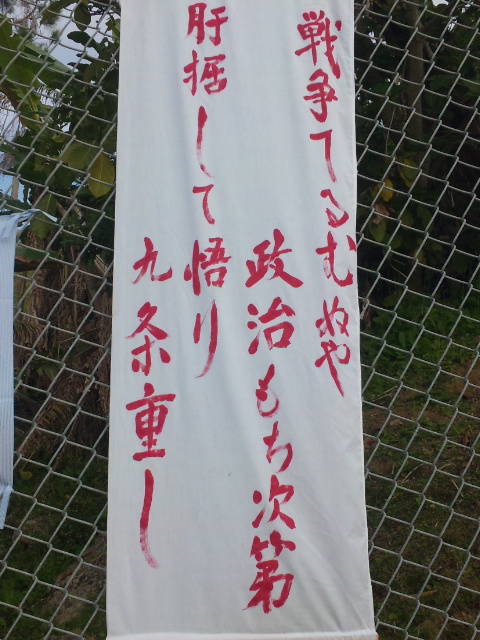 戦争てるむぬや
政治もち次第
肝据して悟り
九条重し